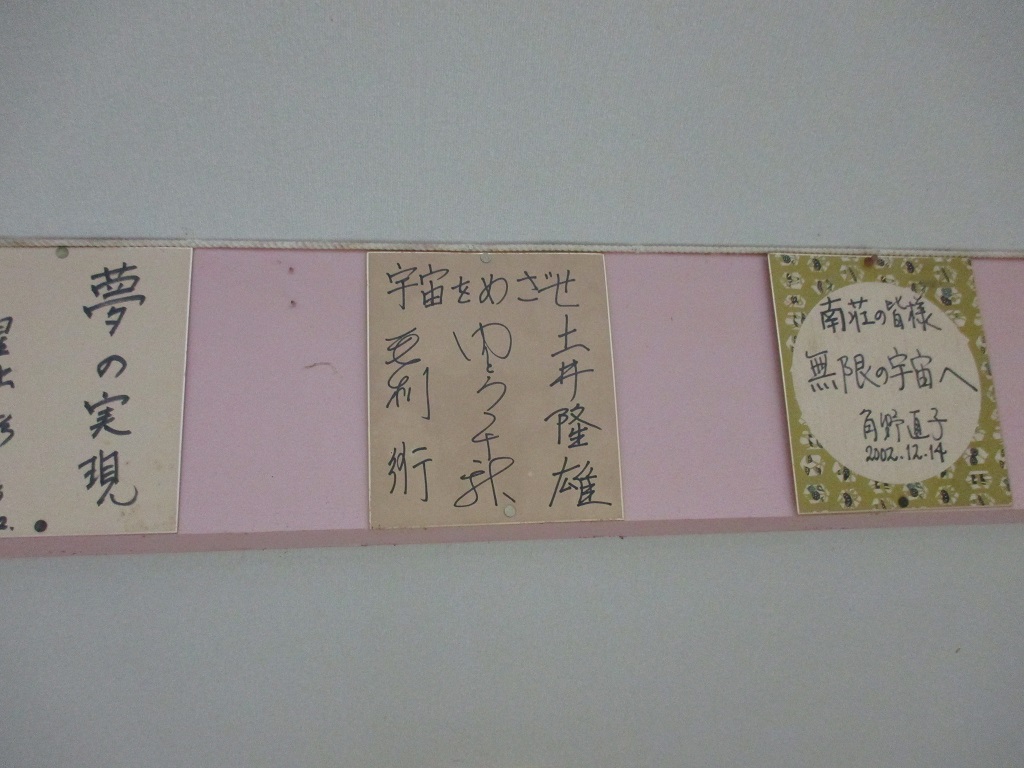 夢の実現
宇宙をめざせ
土井隆雄
毛利衛
南荘の皆様
無限の宇宙へ
角野直子
2002.12.14